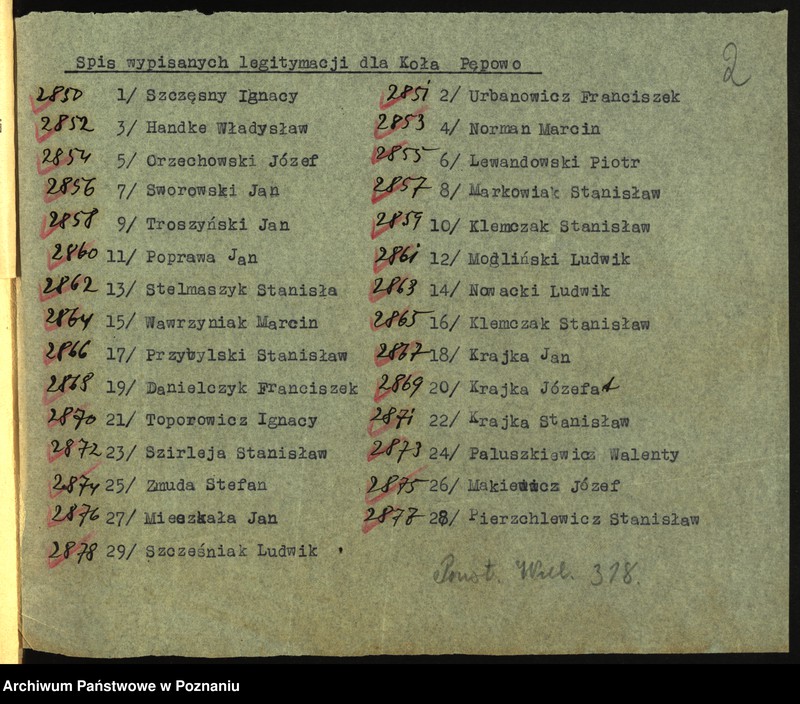 2
Spis wypisanych legitymacji dla Koła Pępowo
2850 1/ Szczęsny Ignacy 2851 2/ Urbanowicz Franciszek
2852 3/ Handke Władysław 2853 4/ Norman Marcin
2854 5/ Orzechowski Józef 2855 6/ Lewandowski Piotr
2856 7/ Sworowski Jan 2857 8/ Markowiak Stanisław
2858 9/ Troszyński Jan 2859 10/ Klemczak Stanisław
2860 11/ Poprawa Jan 2861 12/ Mogliński Ludwik
2862 13/ Stelmaszyk Stanisła 2863 14/ Nowacki Ludwik
2864 15/ Wawrzyniak Marcin 2865 16/ Klemczak Stanisław
2866 17/ Przybylski Stanisław 2867 18/ Krajka Jan
2868 19/ Danielczyk Franciszek 2869 20/ Krajka Józefat
2870 21/ Toporowicz Ignacy 2871 22/ Krajka Stanisław
2872 23/ Szirleja Stanisław 2873 24/ Paluszkiewicz Walenty
2874 25/ Zmuda Stefan 2875 26/ Makiewicz Józef
2876 27/ Mieszkała Jan 2877 28/ Pierzchlewicz Stanisław
2878 29/ Szcześniak Ludwik
Powst. Wiel. 318.
Archiwum Państwowe w Poznaniu